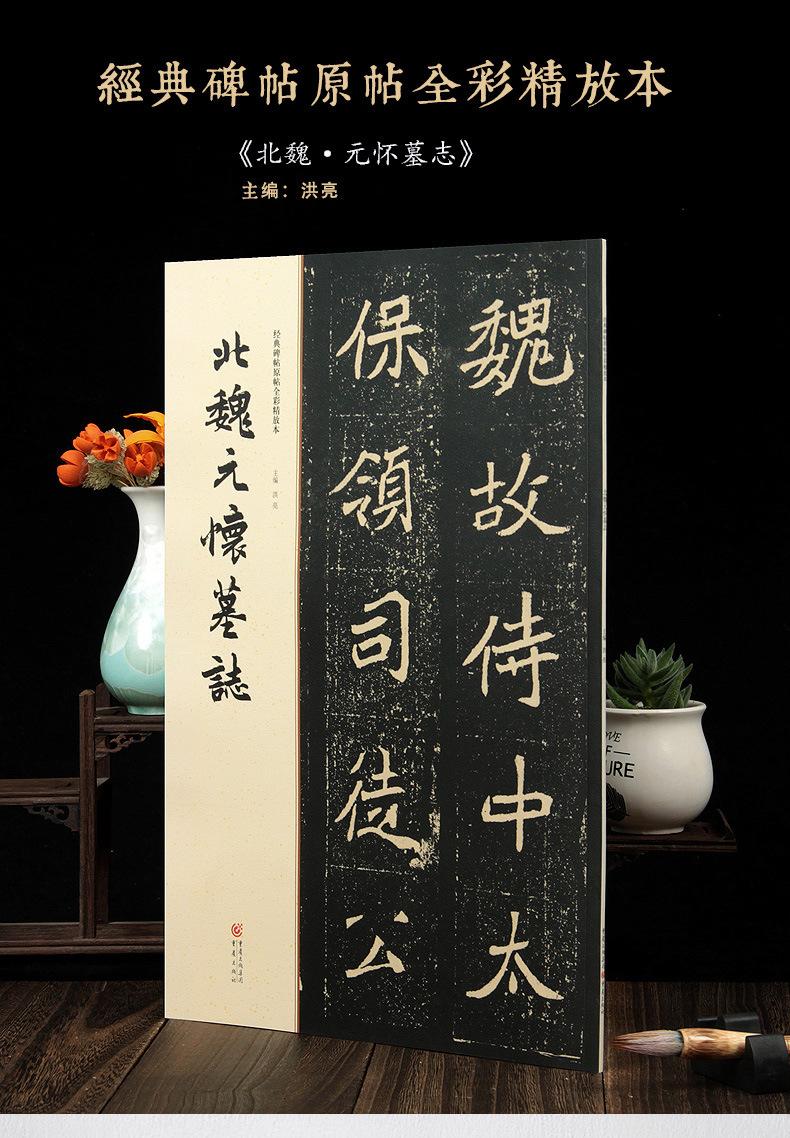 經典碑帖原帖全彩精放本
《北魏·元怀墓志》
主编：洪亮
魏故侍中太
保領司徒公
经典碑帖原帖全彩精放本
主编 洪亮
北魏元懷墓誌
重庆出版集团
重庆出版社